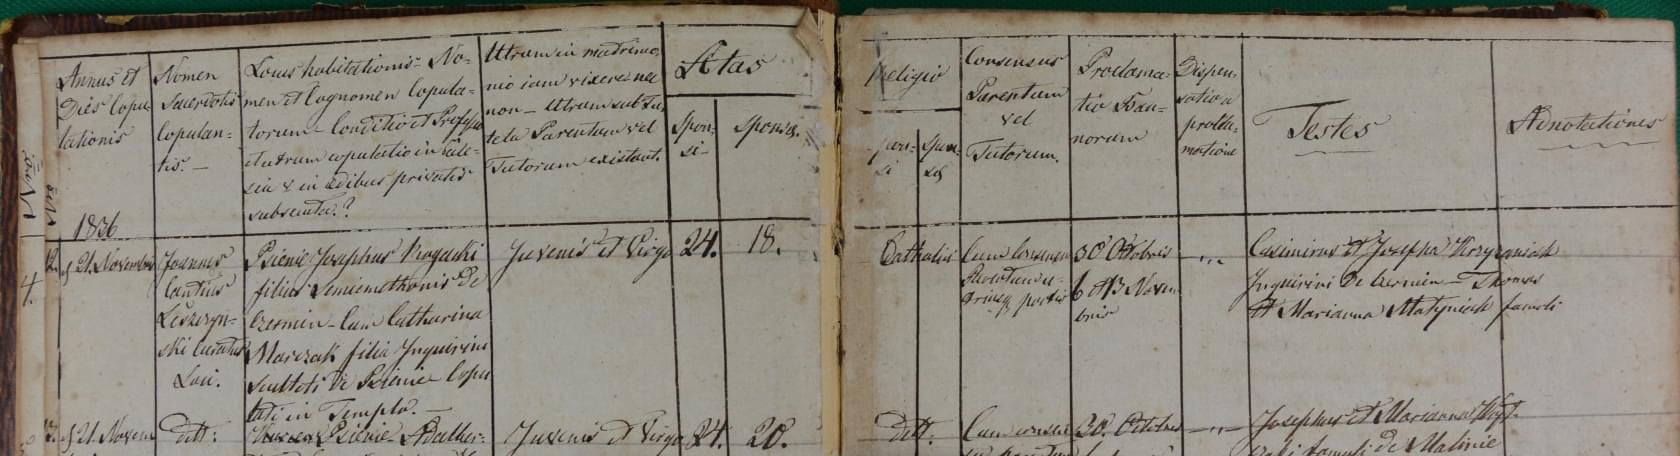 Annus et
Dies Copu
lationis
Nomen
Sacerdotis
Copulan=
tis. —
Locus habitationis – No=
men et Cognomen Copula=
torum – Conditio et Professio
et utrum copulatio in Eccle=
sia v in ædibus privatis
subsecuta.?
Utrum in matrimo
nio iam vixere nec
non – Utrum sub Tu
tela Parentum vel
Tutorum existant.
Ætas
Spon=
si –
Sponsæ.
Religio
Spon=
si
Spon=
sæ
Consensus
Parentum
vel
Tutorum.
Proclama=
tio Ban=
norum
Dispen=
satio a
procla=
matione
Testes
Adnotationes
1836
12. d 21. Novembr
Joannes
Cantius
Leszczyn=
ski Curatus
Loci.
Psienie Josephus Rogacki
filius Semicmethonis de
Czermin – Cum Catharina
Marczak filia Inquirini
Sculteti de Psienie Copu
lati in Templo. –
Juvenis et Virgo
24.
18.
Catholici
Cum consensu
Parentum u=
triusq partis
30 Octobris
6 et 13 Novem
bris
Casimirus et Josepha Krzyzaniak
Inquirini de Czermin – Thomas
et Marianna Matyniak famuli
4.
13. d 21. Novem
ditt:
Psienie Adalber=
Juvenis et Virgo
24.
20.
ditt:
Cum consen
30. Octobris
Josephus et Marianna
famuli de Malinie